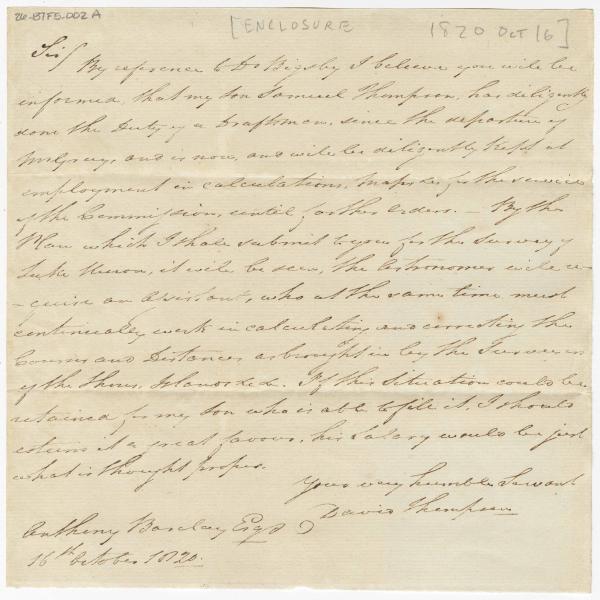 26-BTFS-002A
[ENCLOSURE 1820 Oct 16]
Sir/
By reference to Dr Bigsby I believe you will be
informed, that my son Samuel Thompson, has diligently
done the Duty of a Draftsman, since the departure of
Mr Gray, and is now, and will be diligently kept at
employment in calculations, maps &c for the service
of the Commission, until further Orders. – By the
Plan which I shall submit to you for the survey of
Lake Huron, it will be seen, the Astronomer will re
-quire an Assistant, who at the same time must
continually work in calculating and correcting the
Courses and Distances as brought in by the Surveyors
of the Shores, Islands &c &c. If this Situation could be
retained for my son who is able to fill it, I should
esteem it a great favour, his Salary would be just
what is thought proper.
Your very humble Servant
David Thompson
Anthony Barclay Esqr
16th October 1820.